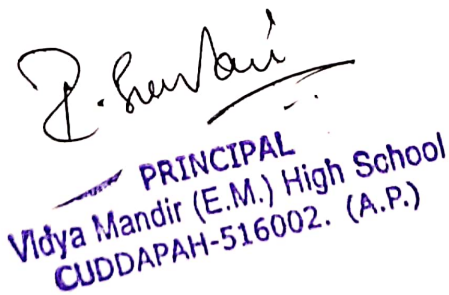 PRINCIPAL
Vidya Mandir (E.M.) High School
CUDDAPAH-516002. (A.P.)